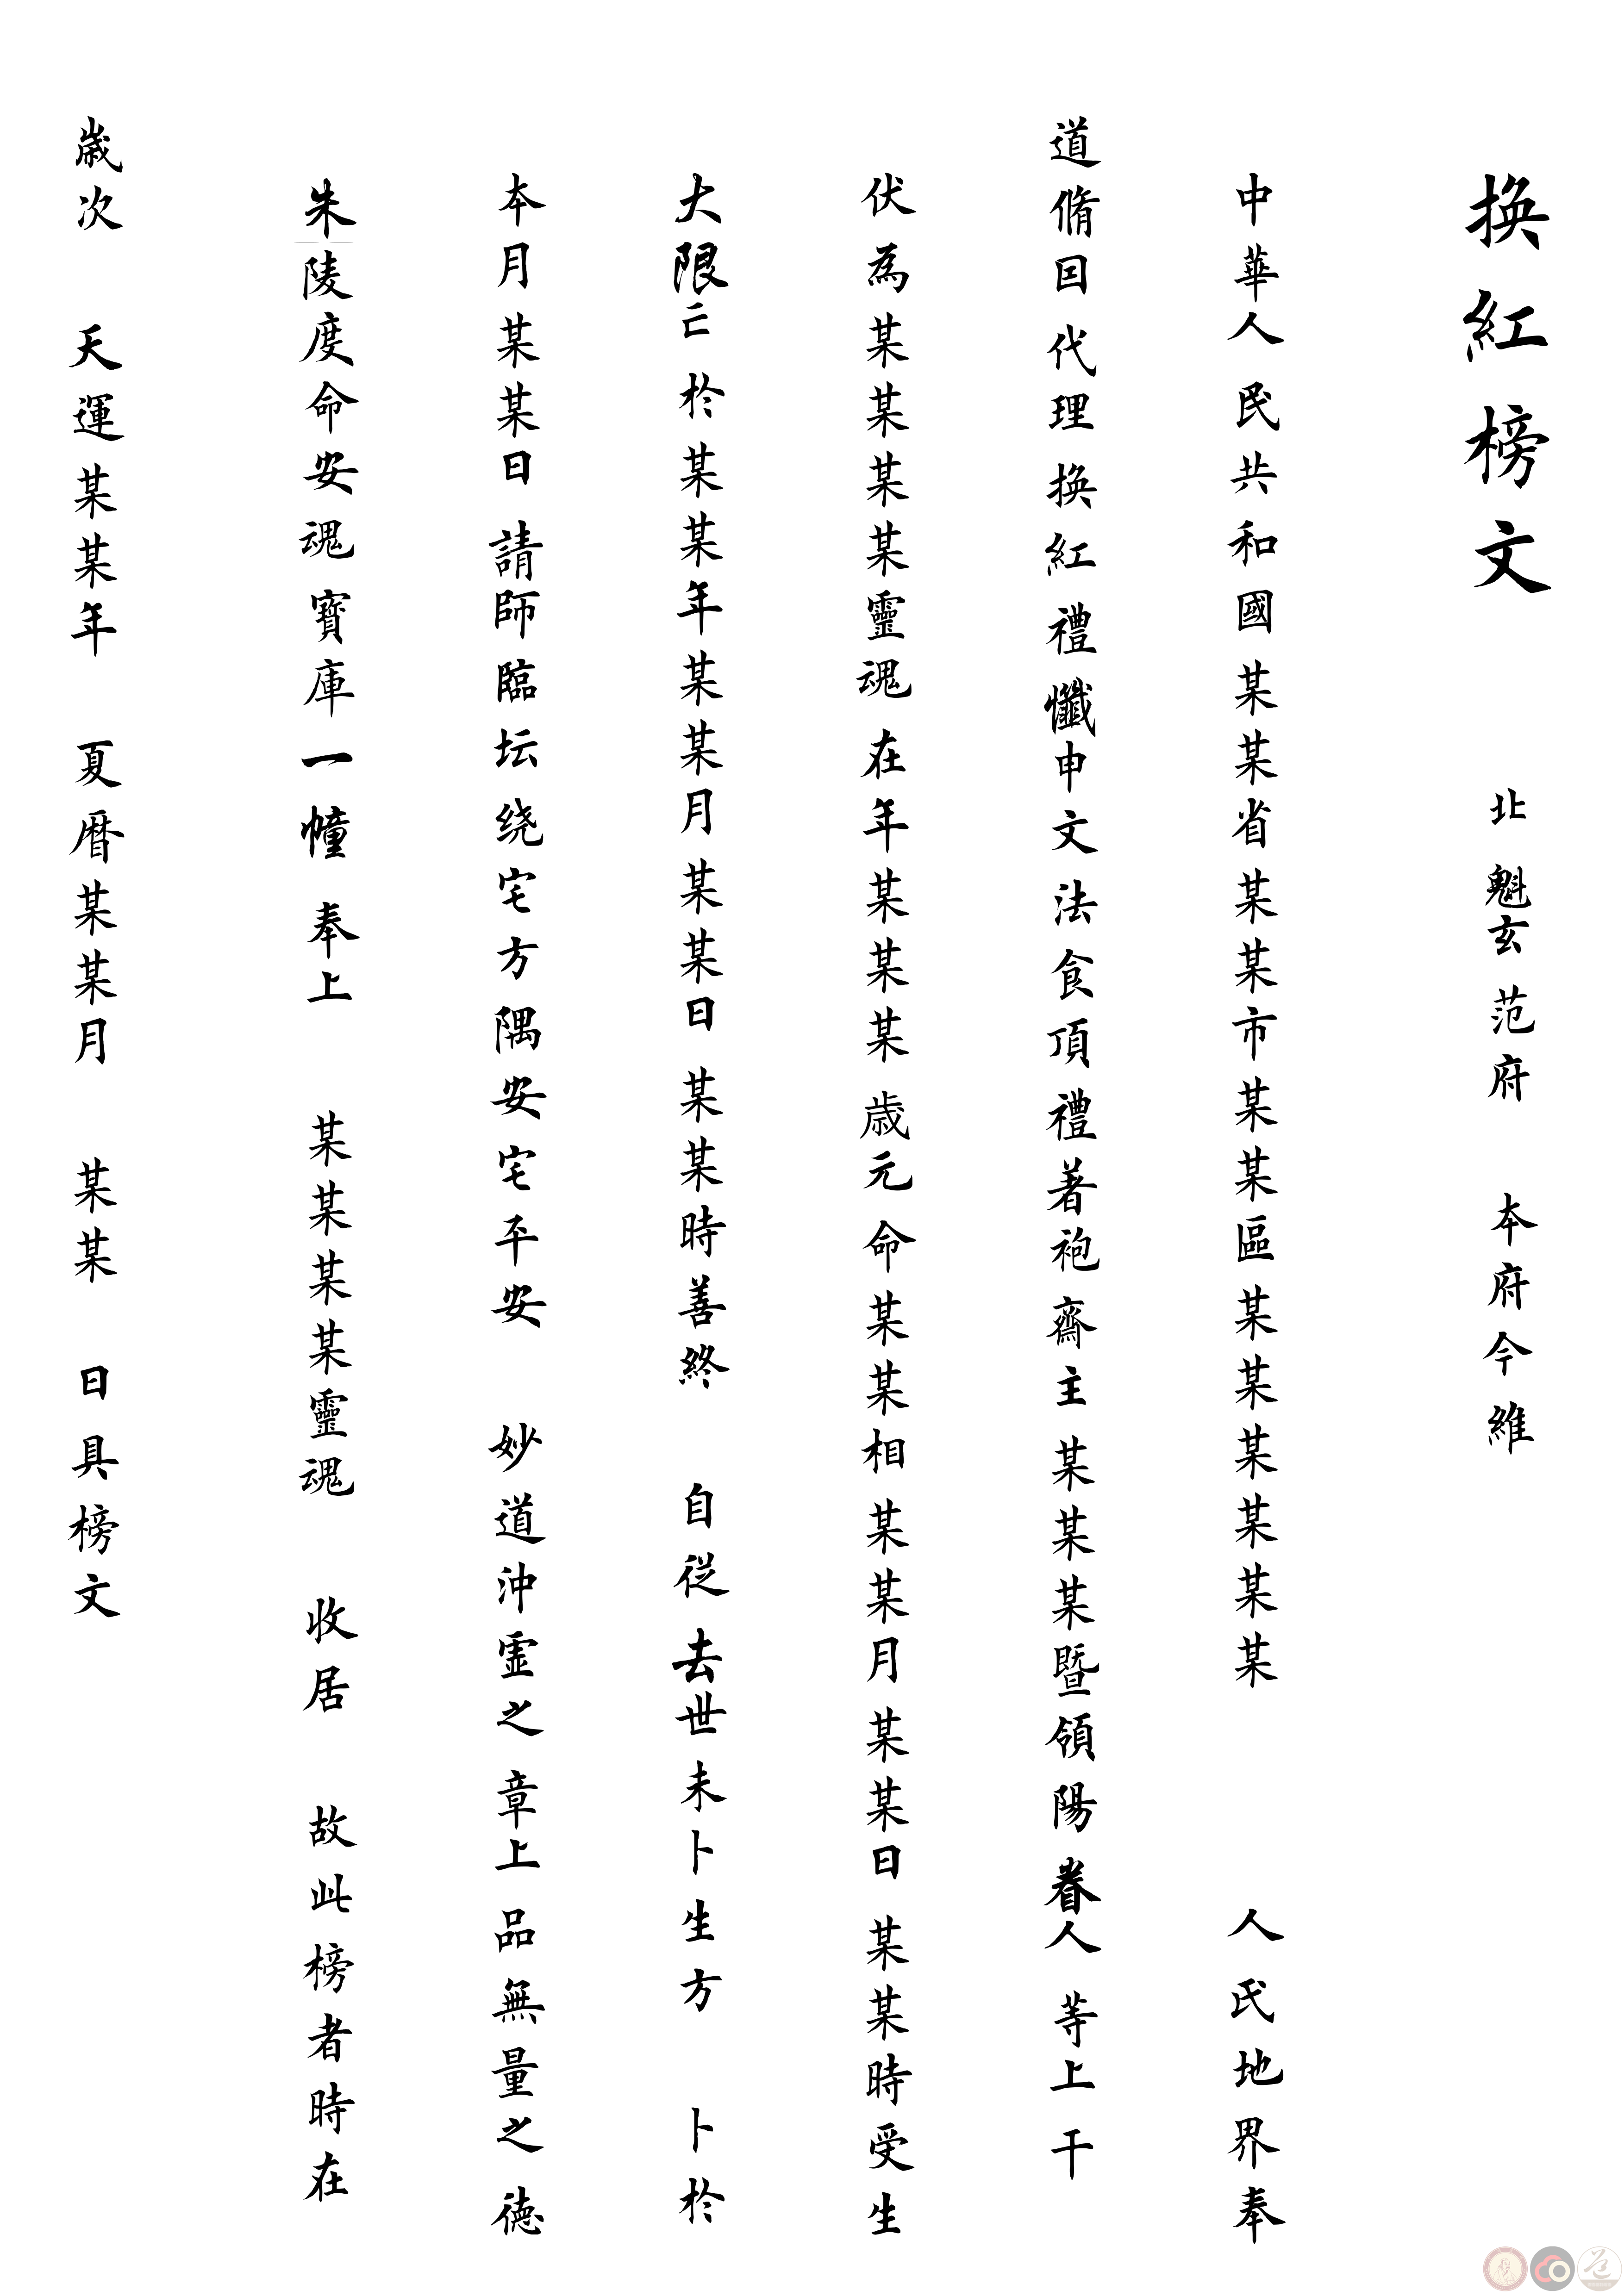 換紅榜文　北魁玄范府　本府今維
中華人民共和國某某省某某市某某區某某某某某某　人民地界奉
道脩囙代理換紅禮懺申文法食頂禮著袍齋主某某某暨領陽眷人等上干
伏為某某某某靈魂在年某某某歳元命某某相某某月某某日某某時受生
大限亡於某某年某某月某某日某某時善終　自従去世未卜生方　卜於
本月某某日請師臨坛绕宅方隅安宅平安　妙道沖霊之章上品無量之德
朱陵度命安魂寶庫一幢奉上　某某某某靈魂　收居　故此榜者時在
歲次　天運某某年　夏曆某某月　某某　日具榜文